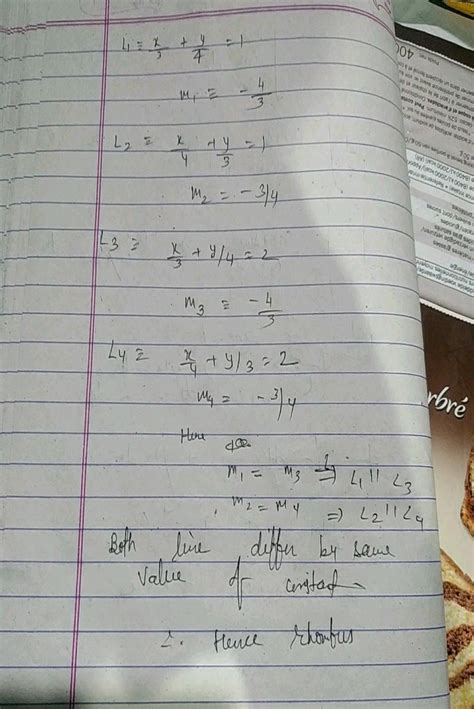 L1 ≡ x/3 + y/4 = 1
m1 = -4/3
L2 ≡ x/4 + y/3 = 1
m2 = -3/4
L3 ≡ x/3 + y/4 = 2
m3 = -4/3
L4 ≡ x/4 + y/3 = 2
m4 = -3/4
Here
m1 = m3 ⇒ L1 || L3
m2 = m4 ⇒ L2 || L4
Both line differ by same
value of constant
∴ Hence rhombus
400
rbré